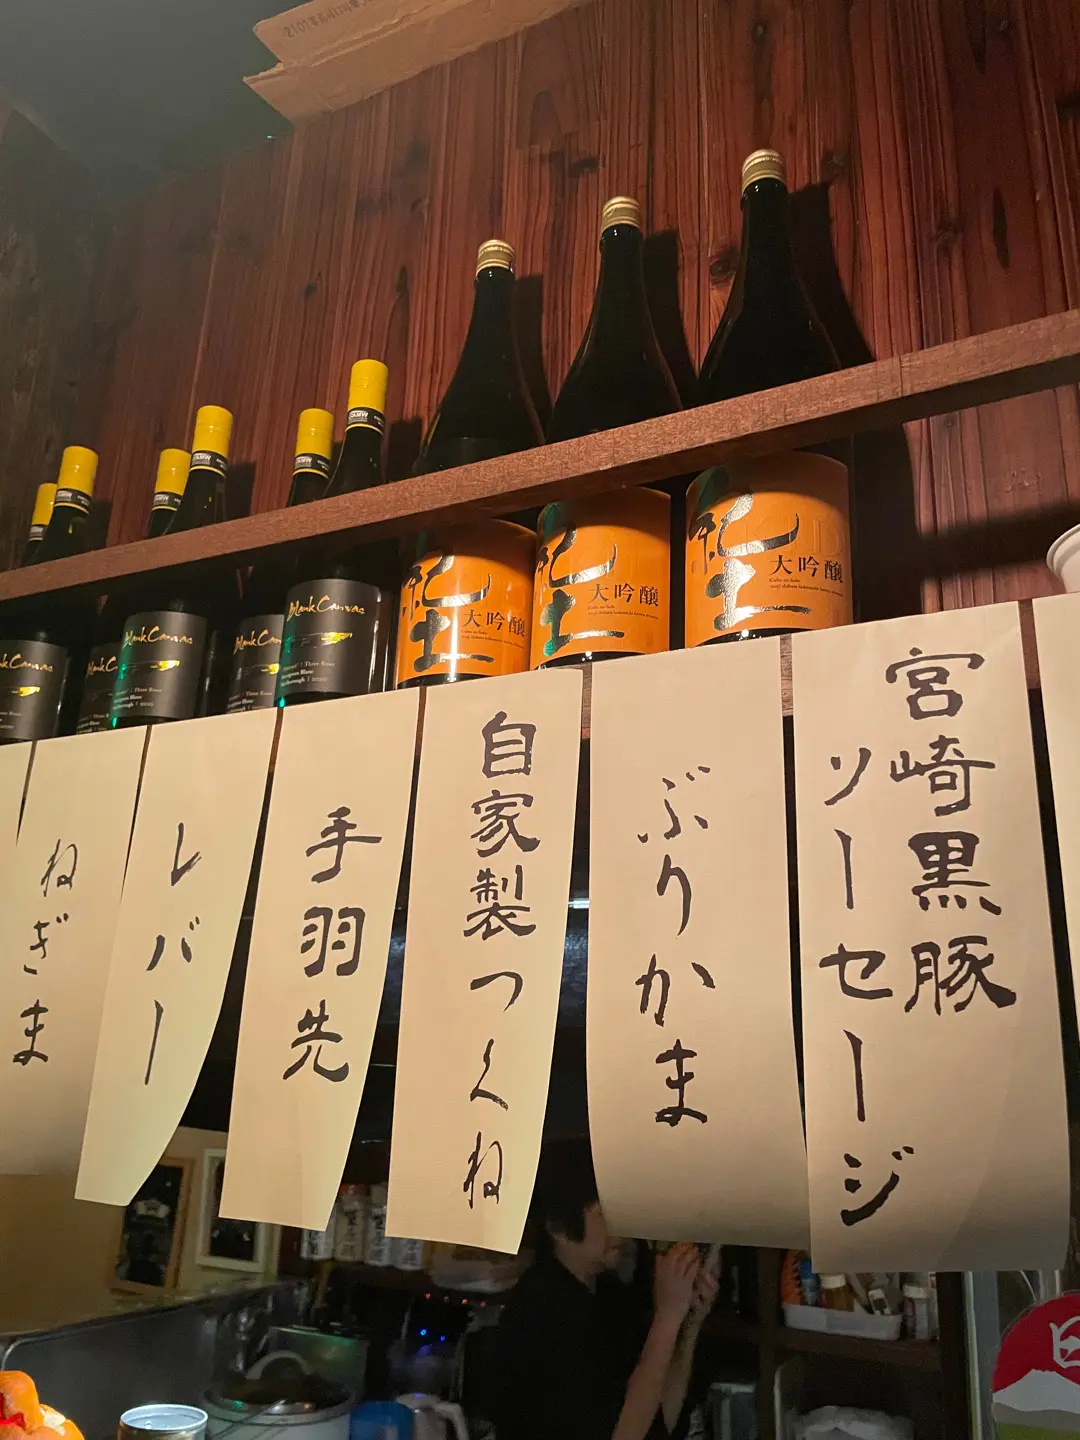 宮崎黒豚
ソーセージ
ぶりかま
自家製つくね
手羽先
レバー
ねぎま
Blank Canvas
Blank Canvas
Blank Canvas
大吟醸
大吟醸
大吟醸